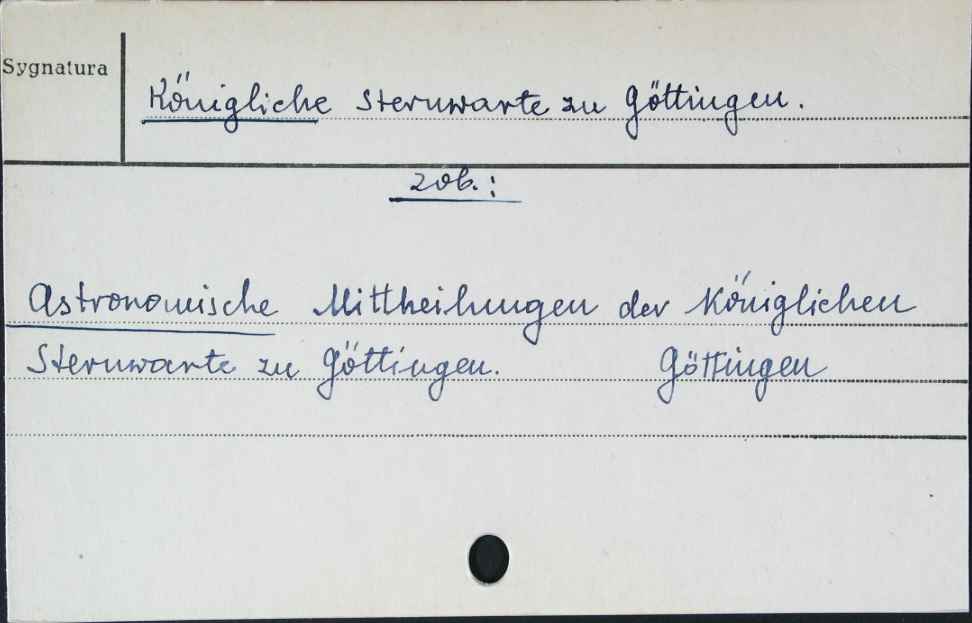 Sygnatura
Königliche Sternwarte zu Göttingen.
zob.:
Astronomische Mittheilungen der Königlichen
Sternwarte zu Göttingen. Göttingen